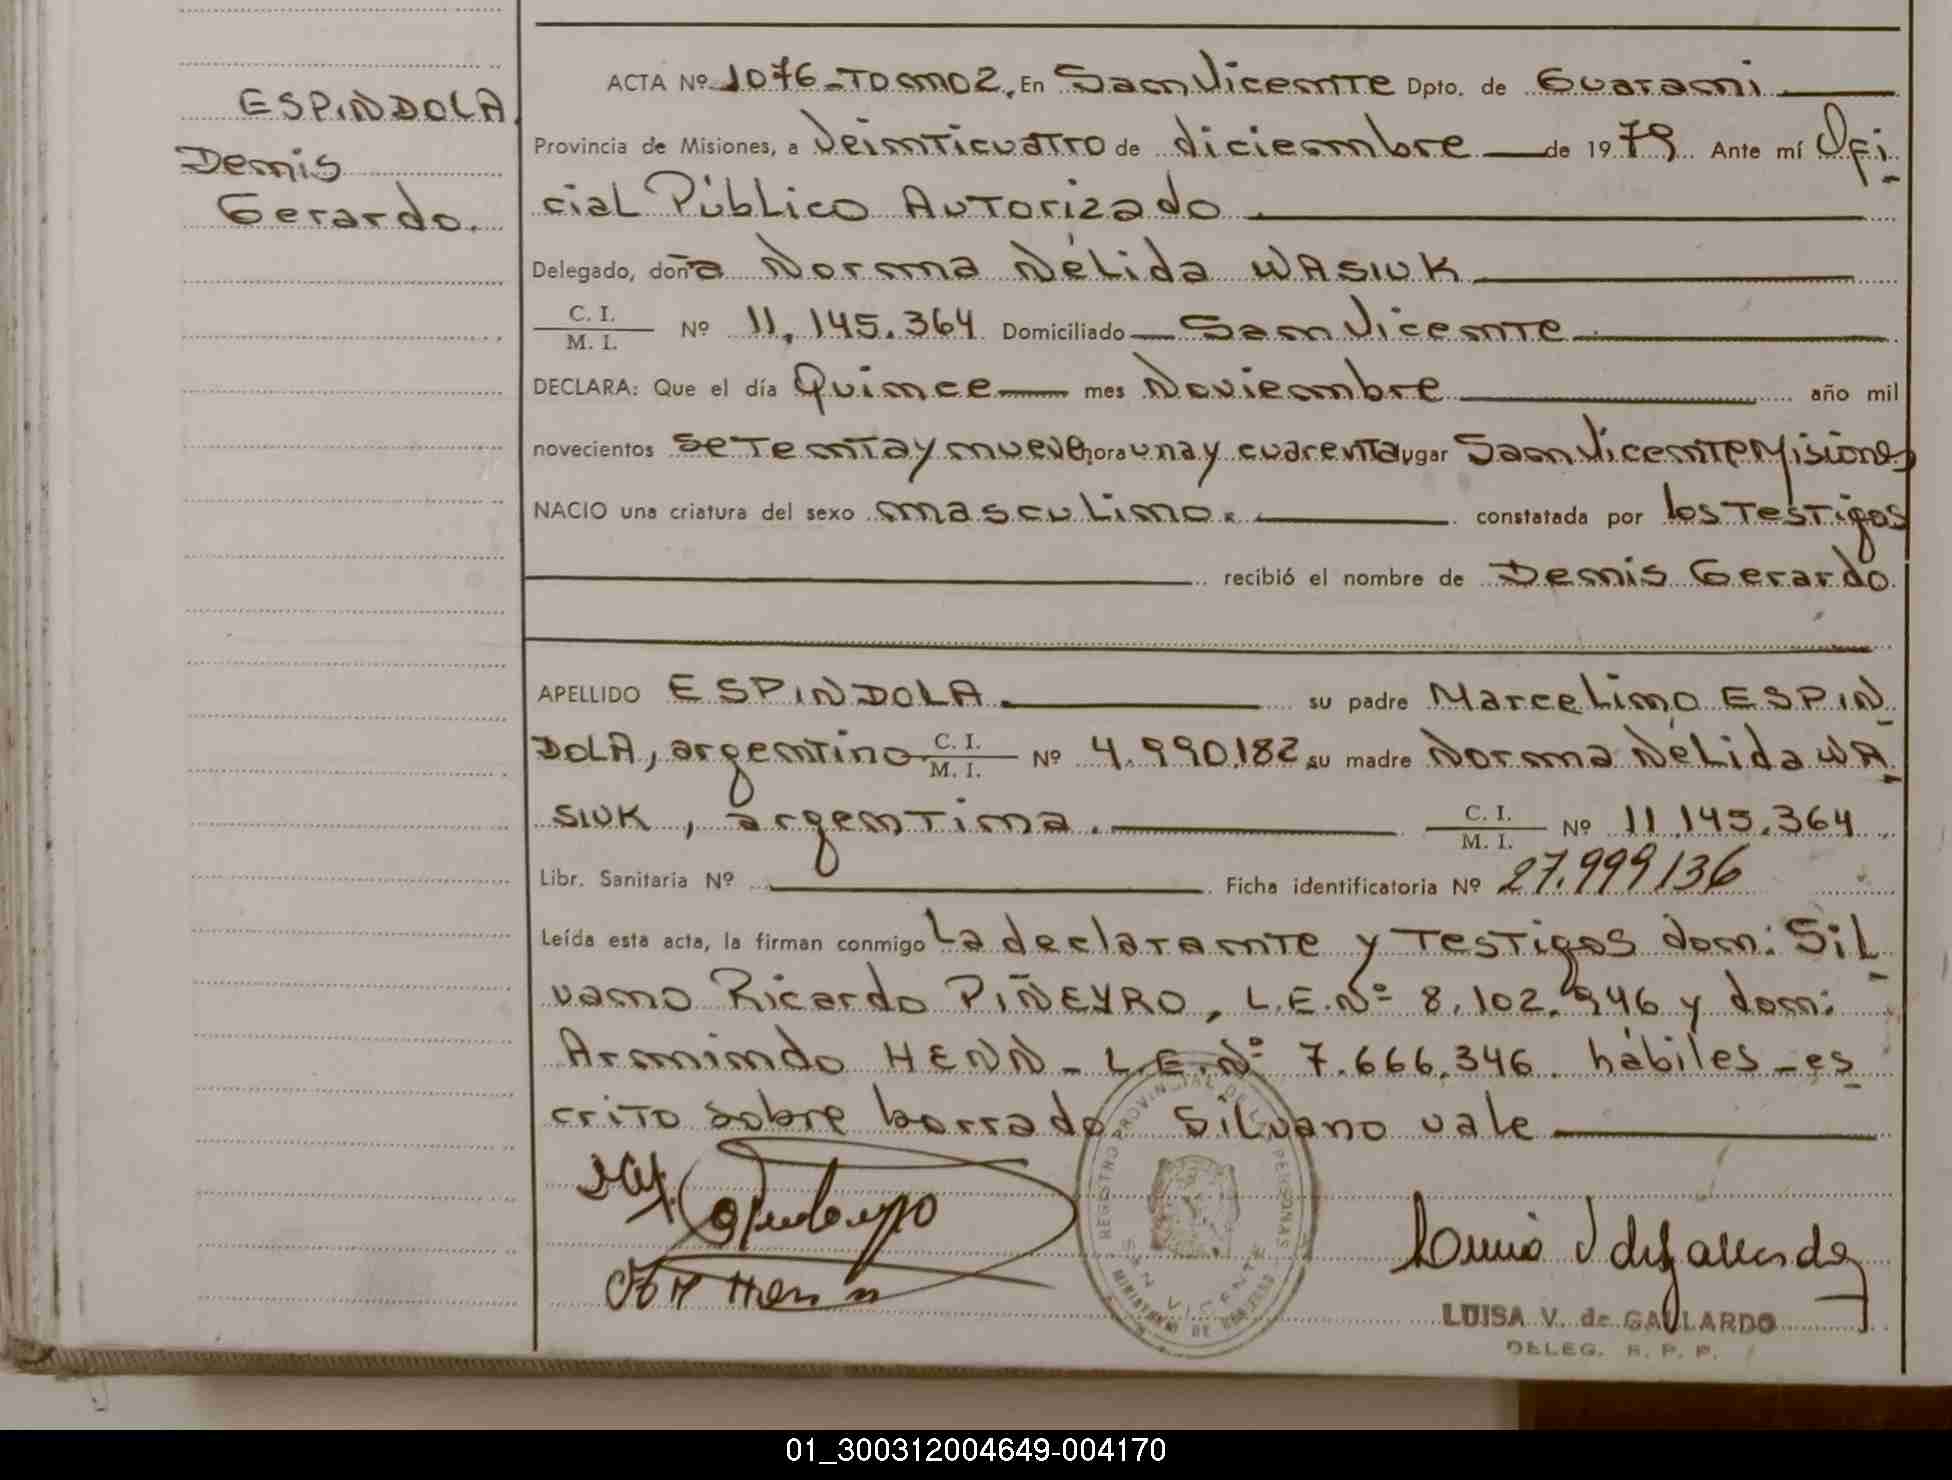 ESPINDOLA,
Denis
Gerardo.
ACTA Nº 1076-TOMO2. En San Vicente Dpto. de Guarani
Provincia de Misiones, a Veinticuatro de diciembre de 1979. Ante mí Ofi-
cial Público Autorizado
Delegado, doña Norma Nélida WASIUK
C. I.
M. I. Nº 11.145.364 Domiciliado San Vicente
DECLARA: Que el día Quince mes Noviembre año mil
novecientos setenta y nueve hora una y cuarenta lugar San Vicente Misiones
NACIO una criatura del sexo masculino. constatada por los testigos
recibió el nombre de Denis Gerardo
APELLIDO ESPINDOLA su padre Marcelino ESPIN-
DOLA, argentino C. I. M. I. Nº 4.990.182 su madre Norma Nélida WA-
SIUK, argentina. C. I. M. I. Nº 11.145.364
Libr. Sanitaria Nº Ficha identificatoria Nº 27.999136
Leída esta acta, la firman conmigo La declarante y testigos don: Sil-
vano Ricardo PIÑEYRO, L.E.Nº 8.102.946 y don:
Armindo HENN - L.E.Nº 7.666.346. hábiles - es-
crito sobre borrado Silvano vale
REGISTRO PROVINCIAL DE LAS PERSONAS
SAN VICENTE
MINISTERIO DE GOBIERNO
Henn
LUISA V. de GALLARDO
DELEG. R. P. P.
01_300312004649-004170